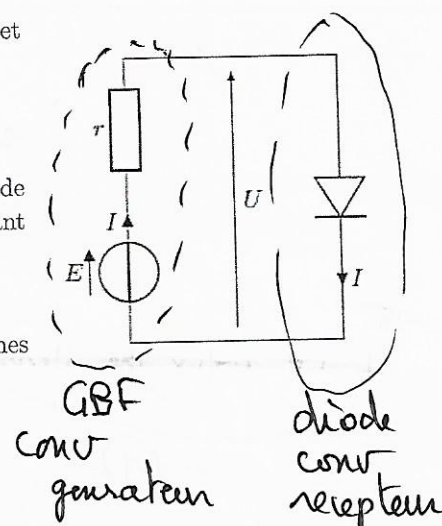 et
de
r
ant
I
U
E
I
nes
GBF
conv
generateur
diode
conv
recepteur